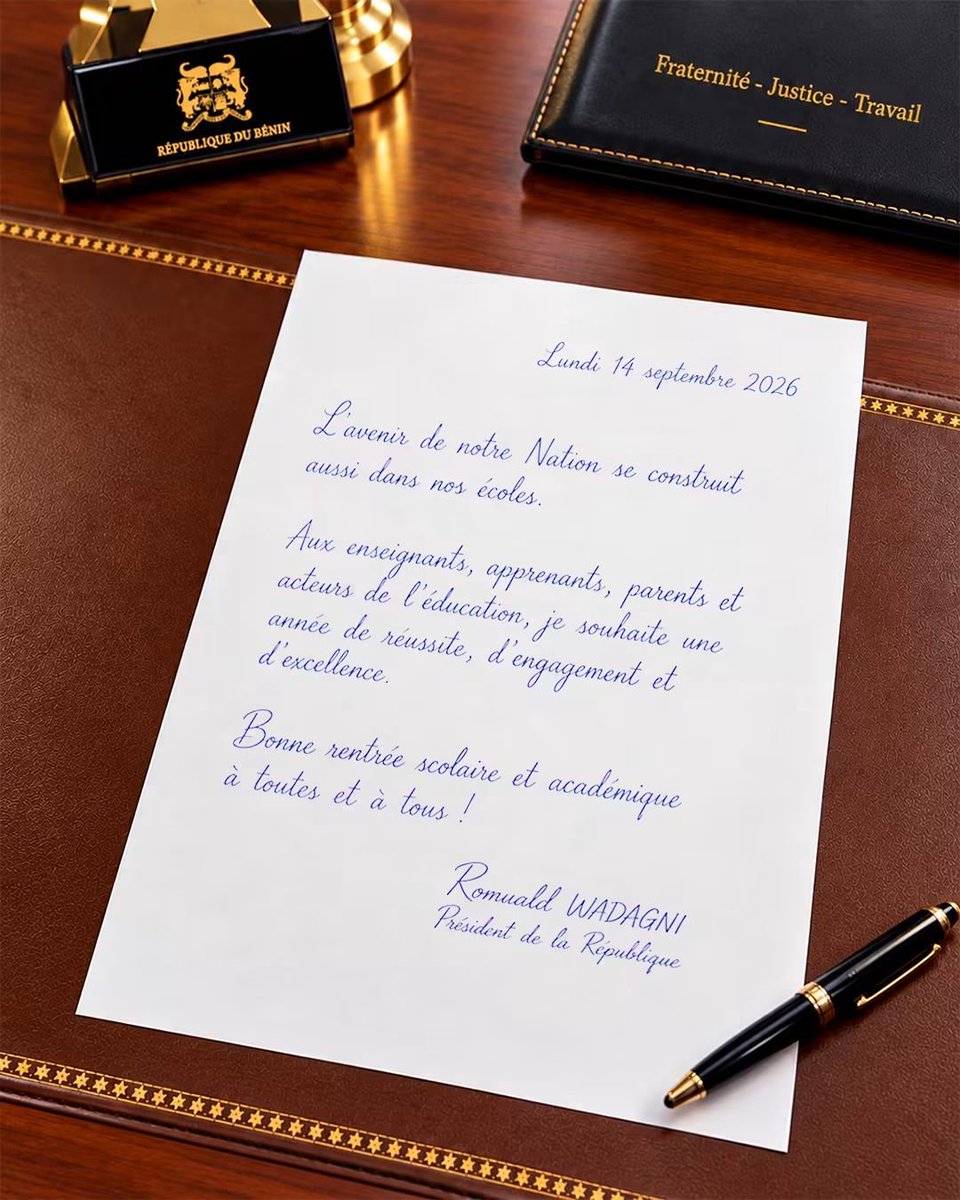 RÉPUBLIQUE DU BÉNIN
Fraternité - Justice - Travail
Lundi 14 septembre 2026
L'avenir de notre Nation se construit
aussi dans nos écoles.
Aux enseignants, apprenants, parents et
acteurs de l'éducation, je souhaite une
année de réussite, d'engagement et
d'excellence.
Bonne rentrée scolaire et académique
à toutes et à tous !
Romuald WADAGNI
Président de la République